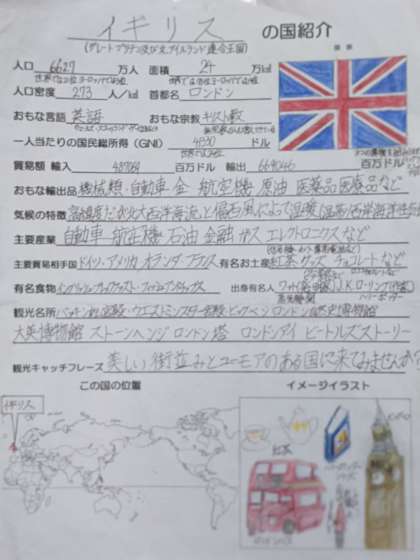 イギリス の国紹介
(グレートブリテン及び北アイルランド連合王国)
国旗
人口 6627 万人 面積 24 万km²
人口密度 273 人/km² 首都名 ロンドン
おもな言語 英語 おもな宗教 キリスト教
一人当たりの国民総所得(GNI) ドル
貿易額 輸入 輸出 百万ドル
おもな輸出品 機械類 自動車 金 航空機 原油 医薬品 など
気候の特徴 高緯度だが北大西洋海流と偏西風によって温暖
主要産業 自動車 航空機 石油 金融 ガス エレクトロニクスなど
主要貿易相手国 ドイツ アメリカ オランダ フランス 有名なお土産 紅茶 グッズ チョコレートなど
有名食物 イングリッシュブレックファスト フィッシュアンドチップス 出身有名人 J.K.ローリング
観光名所 バッキンガム宮殿 ウエストミンスター宮殿 ビッグベン ロンドン自然史博物館
大英博物館 ストーンヘンジ ロンドン塔 ロンドンアイ ビートルズストーリー
観光キャッチフレーズ 美しい街並みとユーモアのある国に来てみませんか?
この国の位置 イメージイラスト
イギリス
紅茶